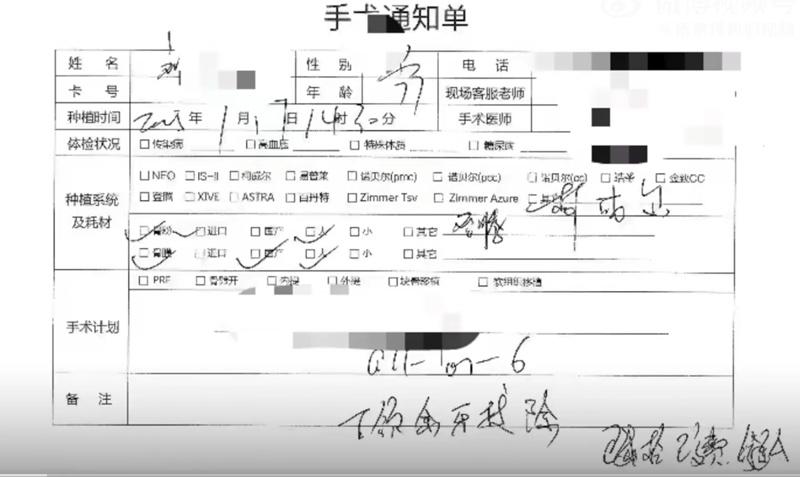 手术通知单
姓 名 性 别 电 话
卡 号 年 龄 现场客服老师
种植时间 2025年1月17日14时30分 手术医师
体检状况 □传染病 □高血压 □特殊体质 □糖尿病
种植系统及耗材 □NEO □IS-II □柯威尔 □易普莱 □诺贝尔(pmc) □诺贝尔(pcc) □诺贝尔(cc) □皓圣 □金钛CC
□登腾 □XIVE □ASTRA □百丹特 □Zimmer Tsv □Zimmer Azure □其它
□骨粉 □进口 □国产 □大 □小 □其它 登腾
□骨膜 □进口 □国产 □大 □小 □其它
手术计划 □PRF □骨劈开 □内提 □外提 □块骨移植 □软组织移植
all-on-6
备 注 下颌余牙拔除